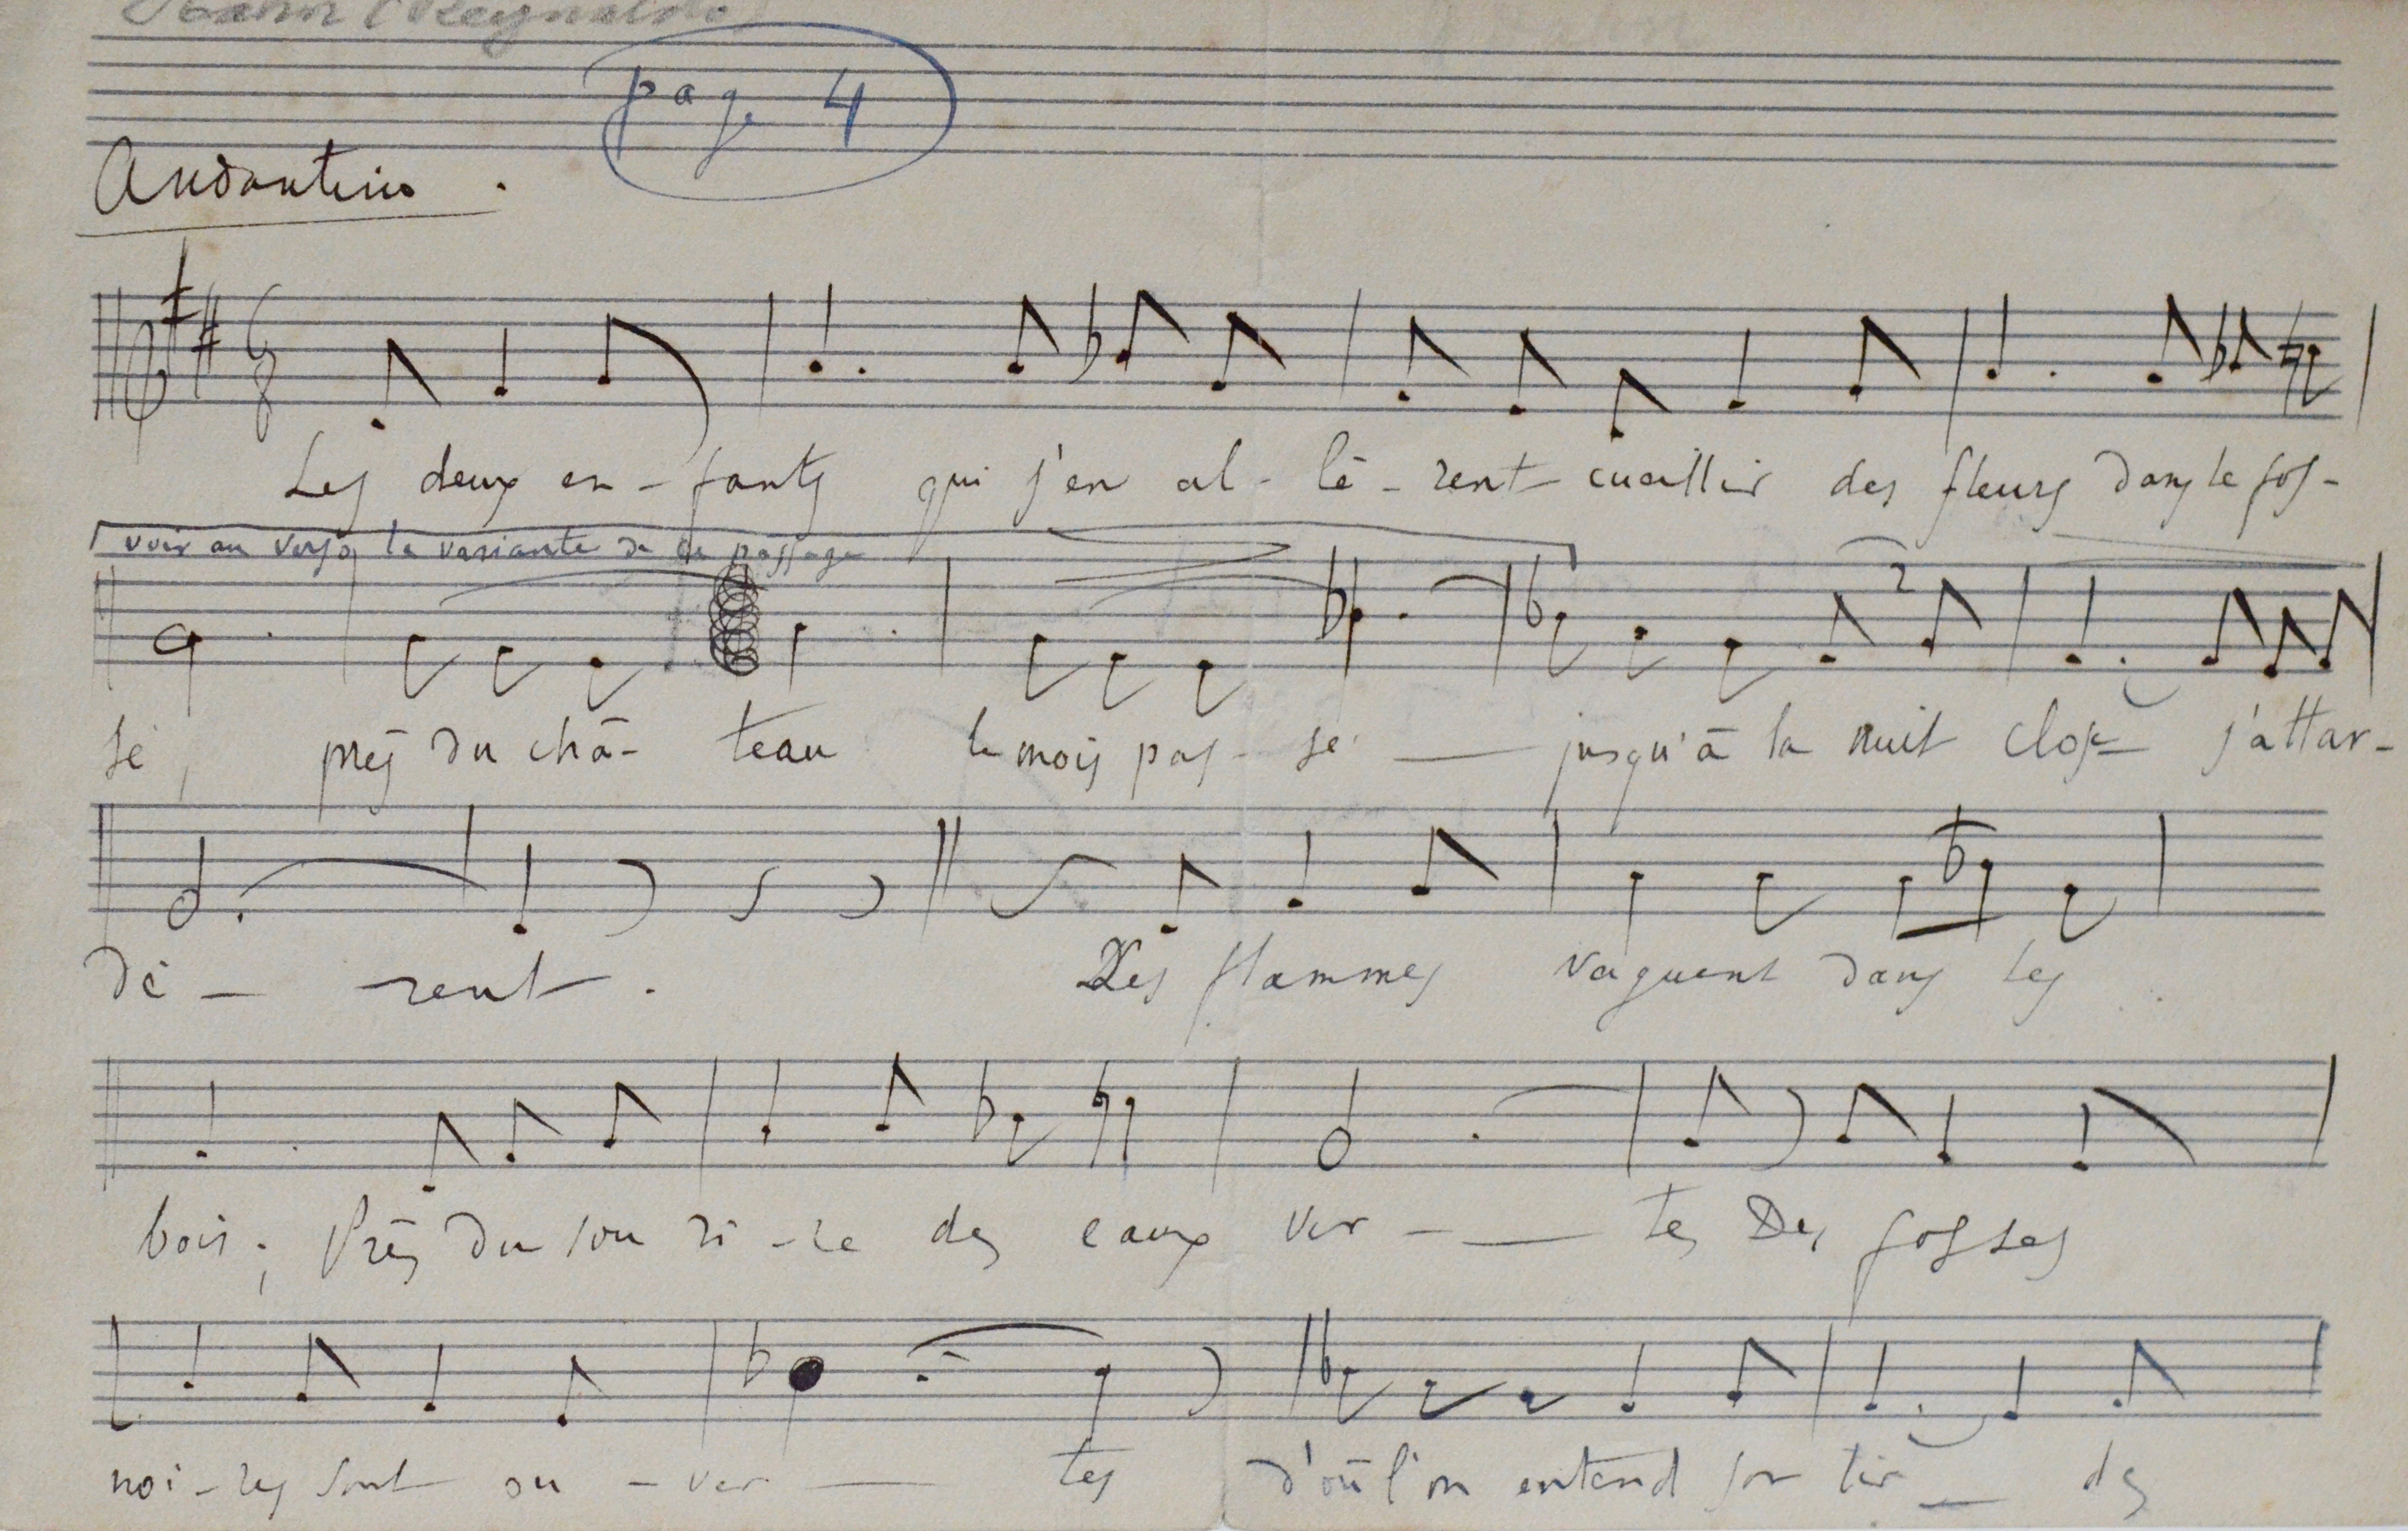 Hahn (Reynaldo)
page 4
Andantino.
Les deux en-fants qui s'en al-lè-rent cueillir des fleurs dans le fos-
voir au verso la variante de ce passage
sé, près du châ-teau le mois pas-sé — jusqu'à la nuit close s'attar-
2
dè-rent.
Les flammes vaguent dans les
bois; Près du sou ri-re des eaux ver-— tes Des fosses
noi-res sont ou-ver — tes d'où l'on entend sor tir — des